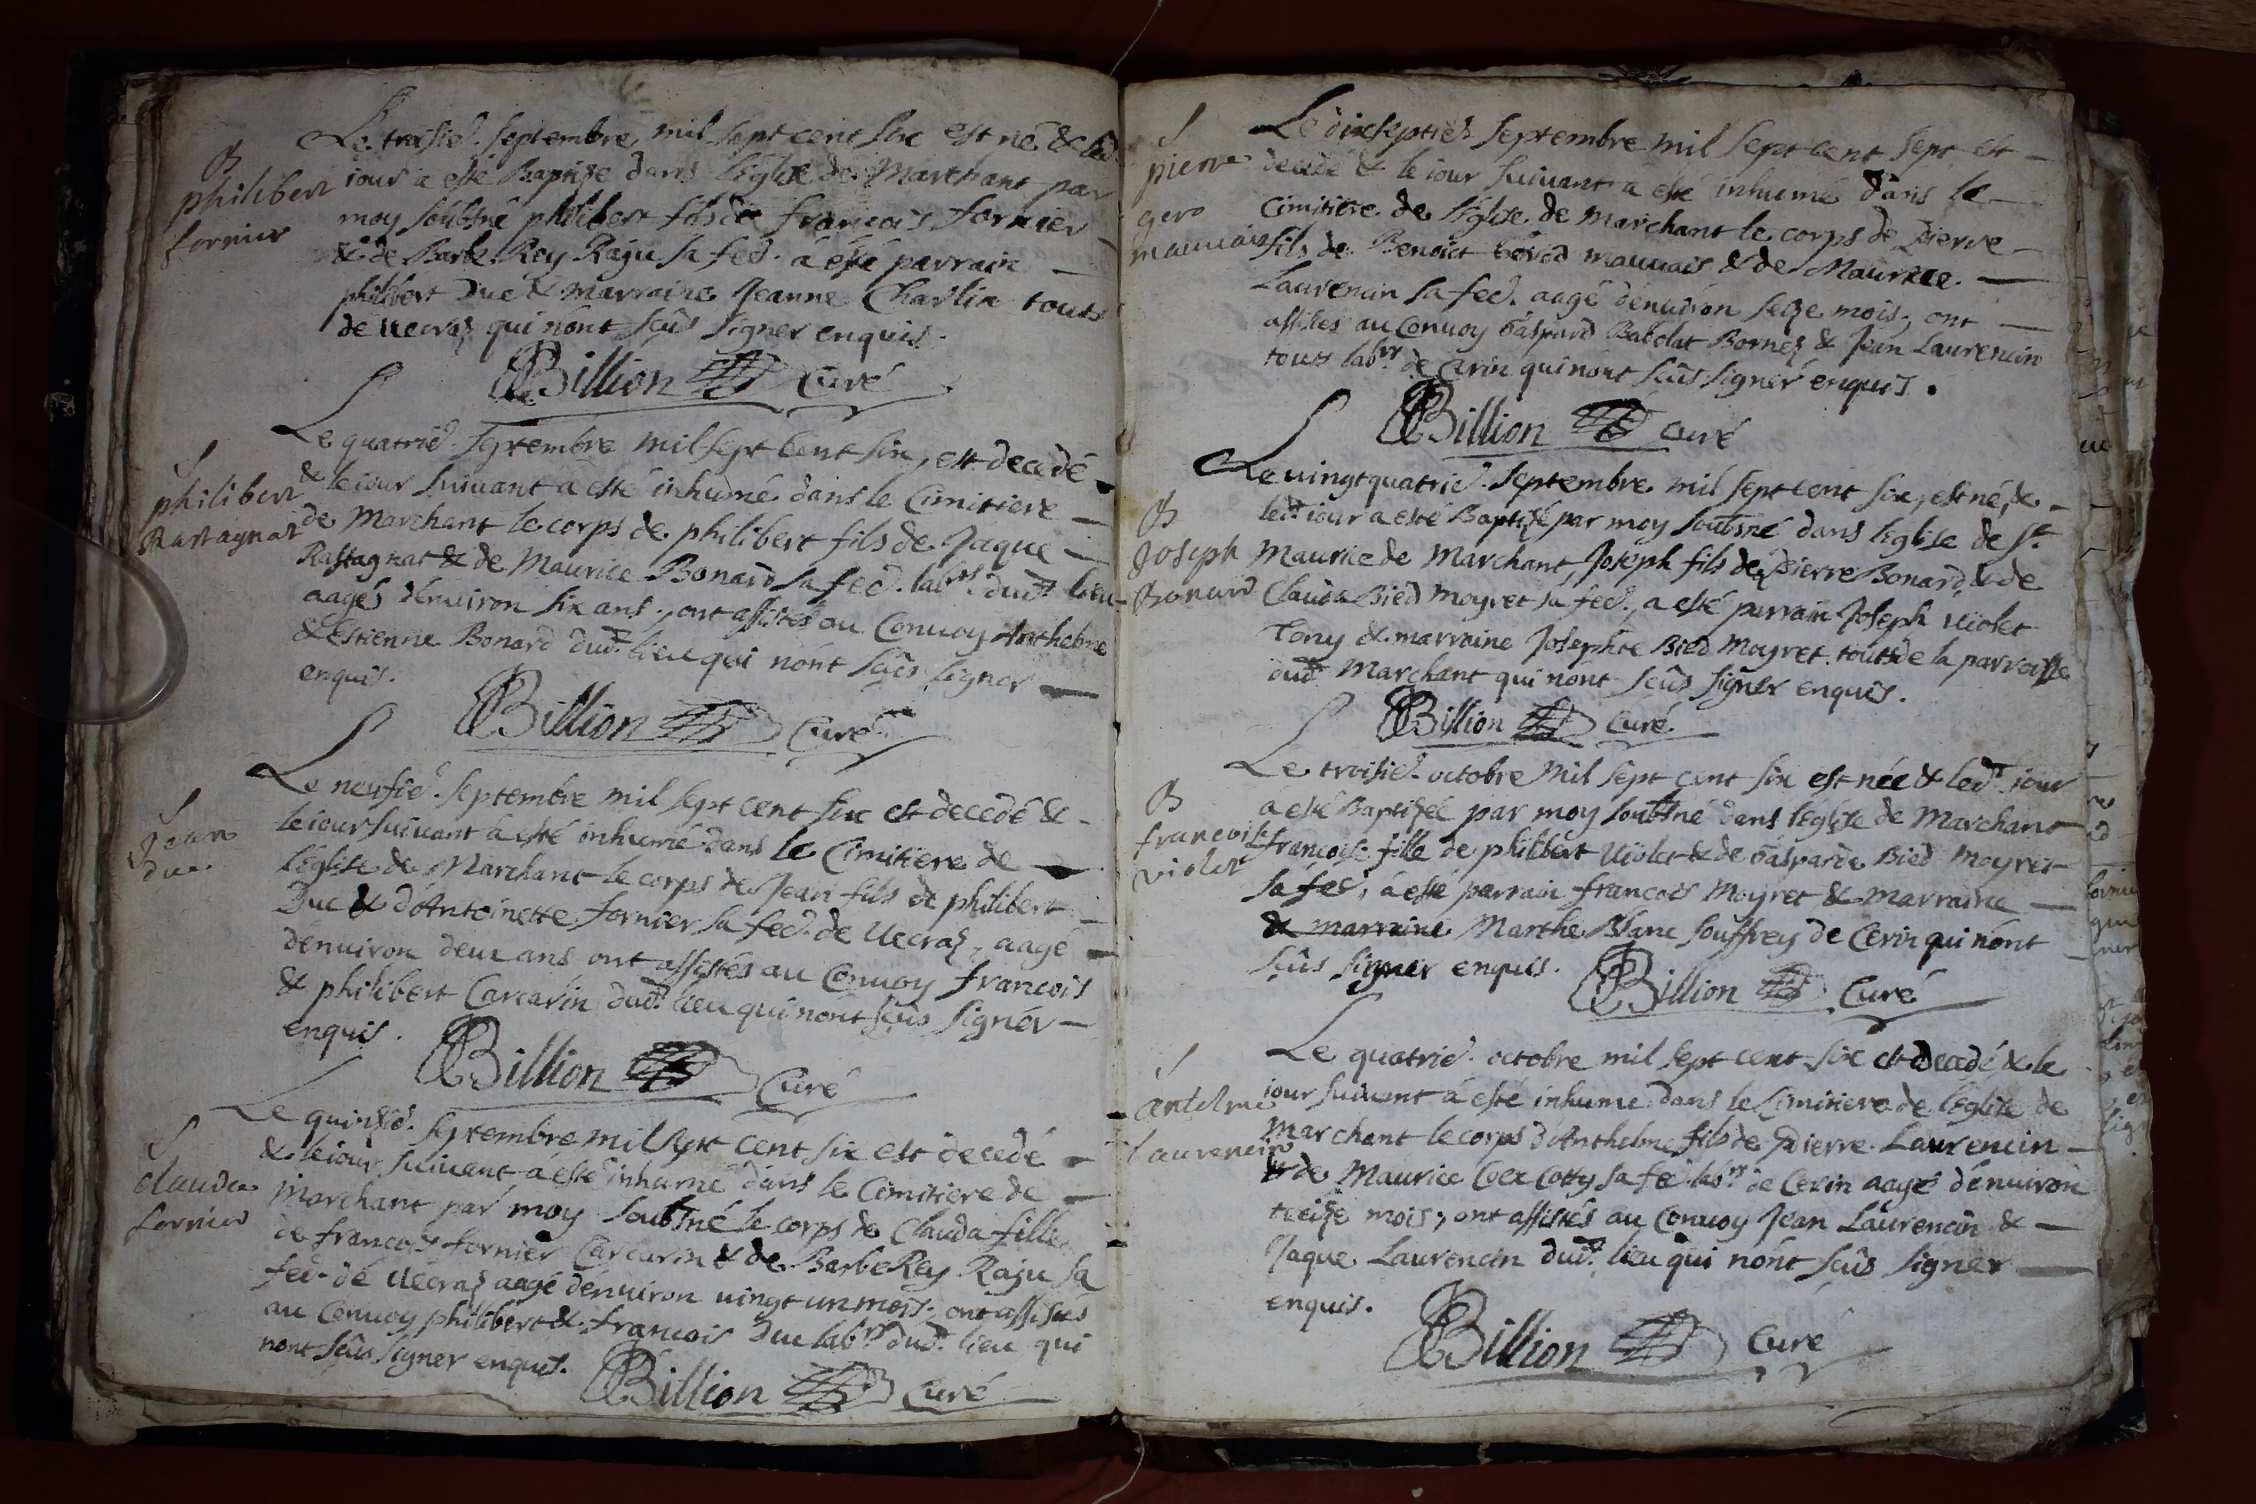 B
philibert
fornier
Le troisie. septembre mil sept cent six est né & led
iour a esté Baptizé dans l'église de Marchant par
moy soubsné philibert fils de françois fornier
& de Barbe Rey Raju sa fed. a esté parrain —
philibert Duc & marraine Jeanne Charlin touts
de Uecraz qui n'ont sçûs signer enquis.
Billion Curé
S
philibert
Rastagnat
Le quatrie. septembre mil sept cent six, est decedé
& le iour suiuant a esté inhumé dans le Cimitiere —
de Marchant le corps de philibert fils de Jaque —
Rastagnat & de Maurice Bonard sa fed. labrs. dudt. lieu
aagés d'enuiron six ans, ont assistés au Conuoy Anthelme
& Estienne Bonard dudt. lieu qui n'ont sçûs signer —
enquis.
Billion Curé
S
Jean
duc
Le neufie. septembre mil sept cent six est decedé & -
le iour suiuant a esté inhumé dans le Cimitiere de —
l'église de Marchant le corps de Jean fils de philibert
Duc & d'Antoinette fornier sa fed. de Uecraz, aagé —
d'enuiron deux ans ont assistés au Conuoy francois
& philibert Carcarin dudt. lieu qui n'ont sçûs signér —
enquis.
Billion Curé
S
clauda
fornier
Le quinzie. septembre mil sept cent six est decedé —
& le iour suiuant a esté inhumé dans le Cimitiere de —
Marchant par moy soubsné le corps de Clauda fille
de francois fornier Carcarin & de Barbe Rey Raju sa
fed. de Uecraz aagé d'enuiron uingt un mois. ont assistés
au Conuoy philibert & francois Duc labrs. dudt. lieu qui
n'ont sçûs signer enquis.
Billion Curé
S
pierre
mauuais
Le dixseptie. septembre mil sept cent sept est —
decedé & le iour suiuant a esté inhumé dans le —
Cimitiere de l'église de Marchant le corps de Pierre —
fils de Benoict mauuais & de Maurice. —
Laurencin sa fed. aagé d'enuiron seize mois, ont —
assistés au Conuoy Gaspard Babolat Bornez & Jean Laurencin
touts labrs. de Cerin qui n'ont sçûs signér enquis.
Billion Curé
B
Joseph
Bonard
Le uingtquatrie. septembre mil sept cent six, est né, & -
ledt. iour a esté Baptizé par moy soubsné dans l'église de St.
Maurice de Marchant Joseph fils de Pierre Bonard, & de
Clauda Bied Moyret sa fed., a esté parrain Joseph Uiolet
Tony & marraine Josephte Bied Moyret. touts de la parroisse
dudt. Marchant qui n'ont sçûs signer enquis.
Billion Curé
B
francoise
violet
Le troisie. octobre mil sept cent six est née & ledt. iour
a esté Baptizée par moy soubsné dans l'église de Marchant
francoise fille de philibert Uiolet & de Gasparde Bied Moyret
sa fed., a esté parrain francois Moyret & marraine —
& marraine Marthe Blanc souffrey de Cerin qui n'ont
sçûs signer enquis.
Billion Curé
S
antelme
laurencin
Le quatrie. octobre mil sept cent six est decedé & le
iour suiuant a esté inhumé dans le Cimitiere de l'église de
Marchant le corps d'Anthelme fils de Pierre Laurencin —
& de Maurice Coex Cotty sa fe. labrs. de Cerin aagé d'enuiron
treize mois, ont assistés au Conuoy Jean Laurencin & —
Jaque Laurencin dudt. lieu qui n'ont sçûs signer —
enquis.
Billion Curé